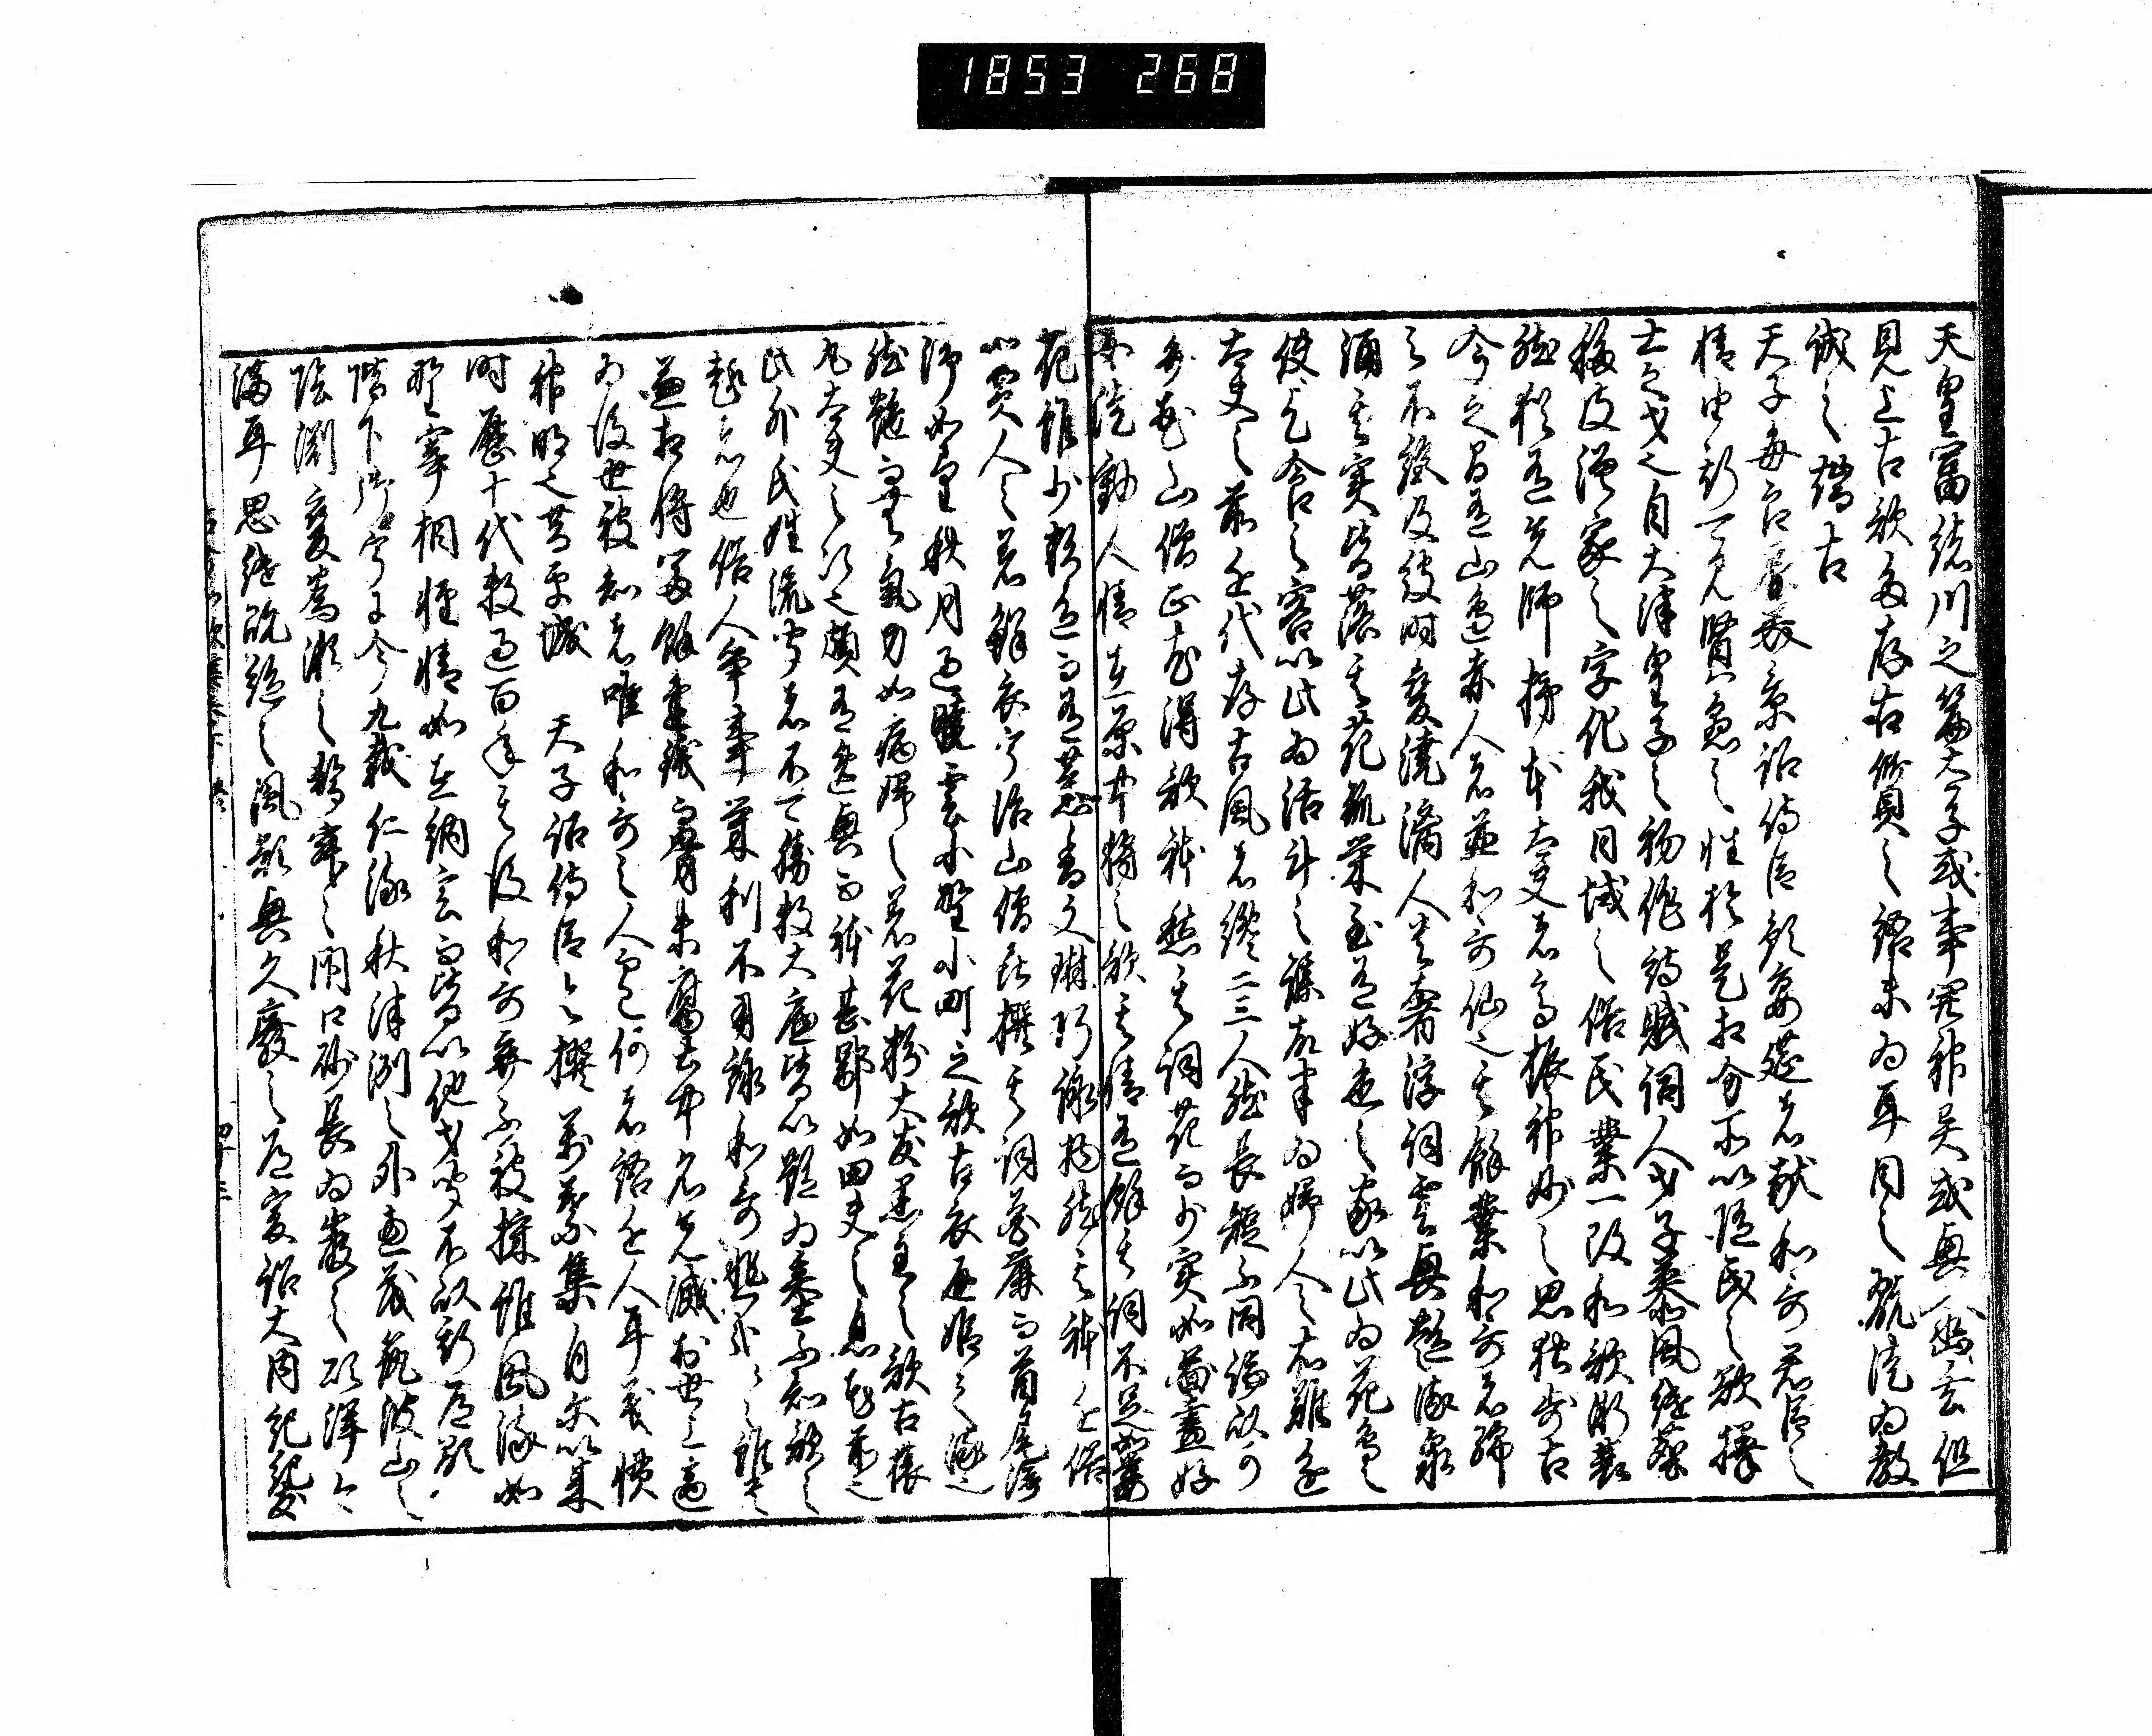 天皇富緒川之篇太子或事関神異或興入幽玄但
見上古歌多存古質之語未為耳目之翫徒為教
誡之端古
天子毎良辰美景詔侍臣預宴莚者献和哥君臣之
情由斯可見賢愚之性於是相分所以随民之欲擇
士之才也自大津皇子之初作詩賦詞人才子慕風継塵
移彼漢家之字化我日域之俗民業一改和歌漸衰
然猶有先師柿本大夫者高振神妙之思独歩古
今之間有山邊赤人者並和哥仙也其餘業和哥者綿
々不絶及彼時變澆漓人貴奢淫浮詞雲興艶流泉
涌其実皆落其花孤栄至有好色之家以此為花鳥之
使乞食之客以此為活計之謀故半為婦人之右難進
大夫之前近代存古風者纔二三人然長短不同論以可
弁花山僧正尤得歌躰然其詞花而少実如圖畫好
女徒動人情在原中将之歌其情有餘其詞不足如萎
花雖少彩色而有薫香文琳巧詠物然其躰近俗
如賈人之着鮮衣宇治山僧喜撰其詞花麗而首尾停
滞如望秋月遇曉雲小野小町之歌古衣通姫之流也
然艶而無氣力如病婦之着花粉大友黒主之歌古猿
丸大夫之次也頗有逸興而躰甚鄙如田夫之息花前也
此外氏姓流聞者不可勝数大底皆以艶為基不知歌之
趣者也俗人争事栄利不用詠和哥悲哉々々雖貴
兼相将富餘金銭而骨未腐土中名先滅於世上適
為後世被知者唯和哥之人而已何者語近人耳義慣
神明也昔平城　天子詔侍臣令撰萬葉集自尓以来
時歴十代数過百年其後和哥棄不被採雖風流如
野宰相軽情如在納言而皆以他才聞不以斯道顕
陛下御宇于今九載仁流秋津洲之外恵茂筑波山之
陰淵変為瀬之聲寂々閇口砂長為巌之頌洋々
満耳思継既絶之風欲興久廢之道爰詔大内記紀友